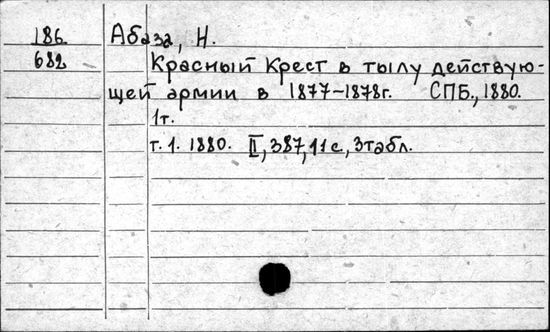 186 Абаза, Н.
682 Красный Крест в тылу действую-
щей армии в 1877-1878г. СПБ., 1880.
1т.
т.1. 1880. II, 387, 11с, 3табл.